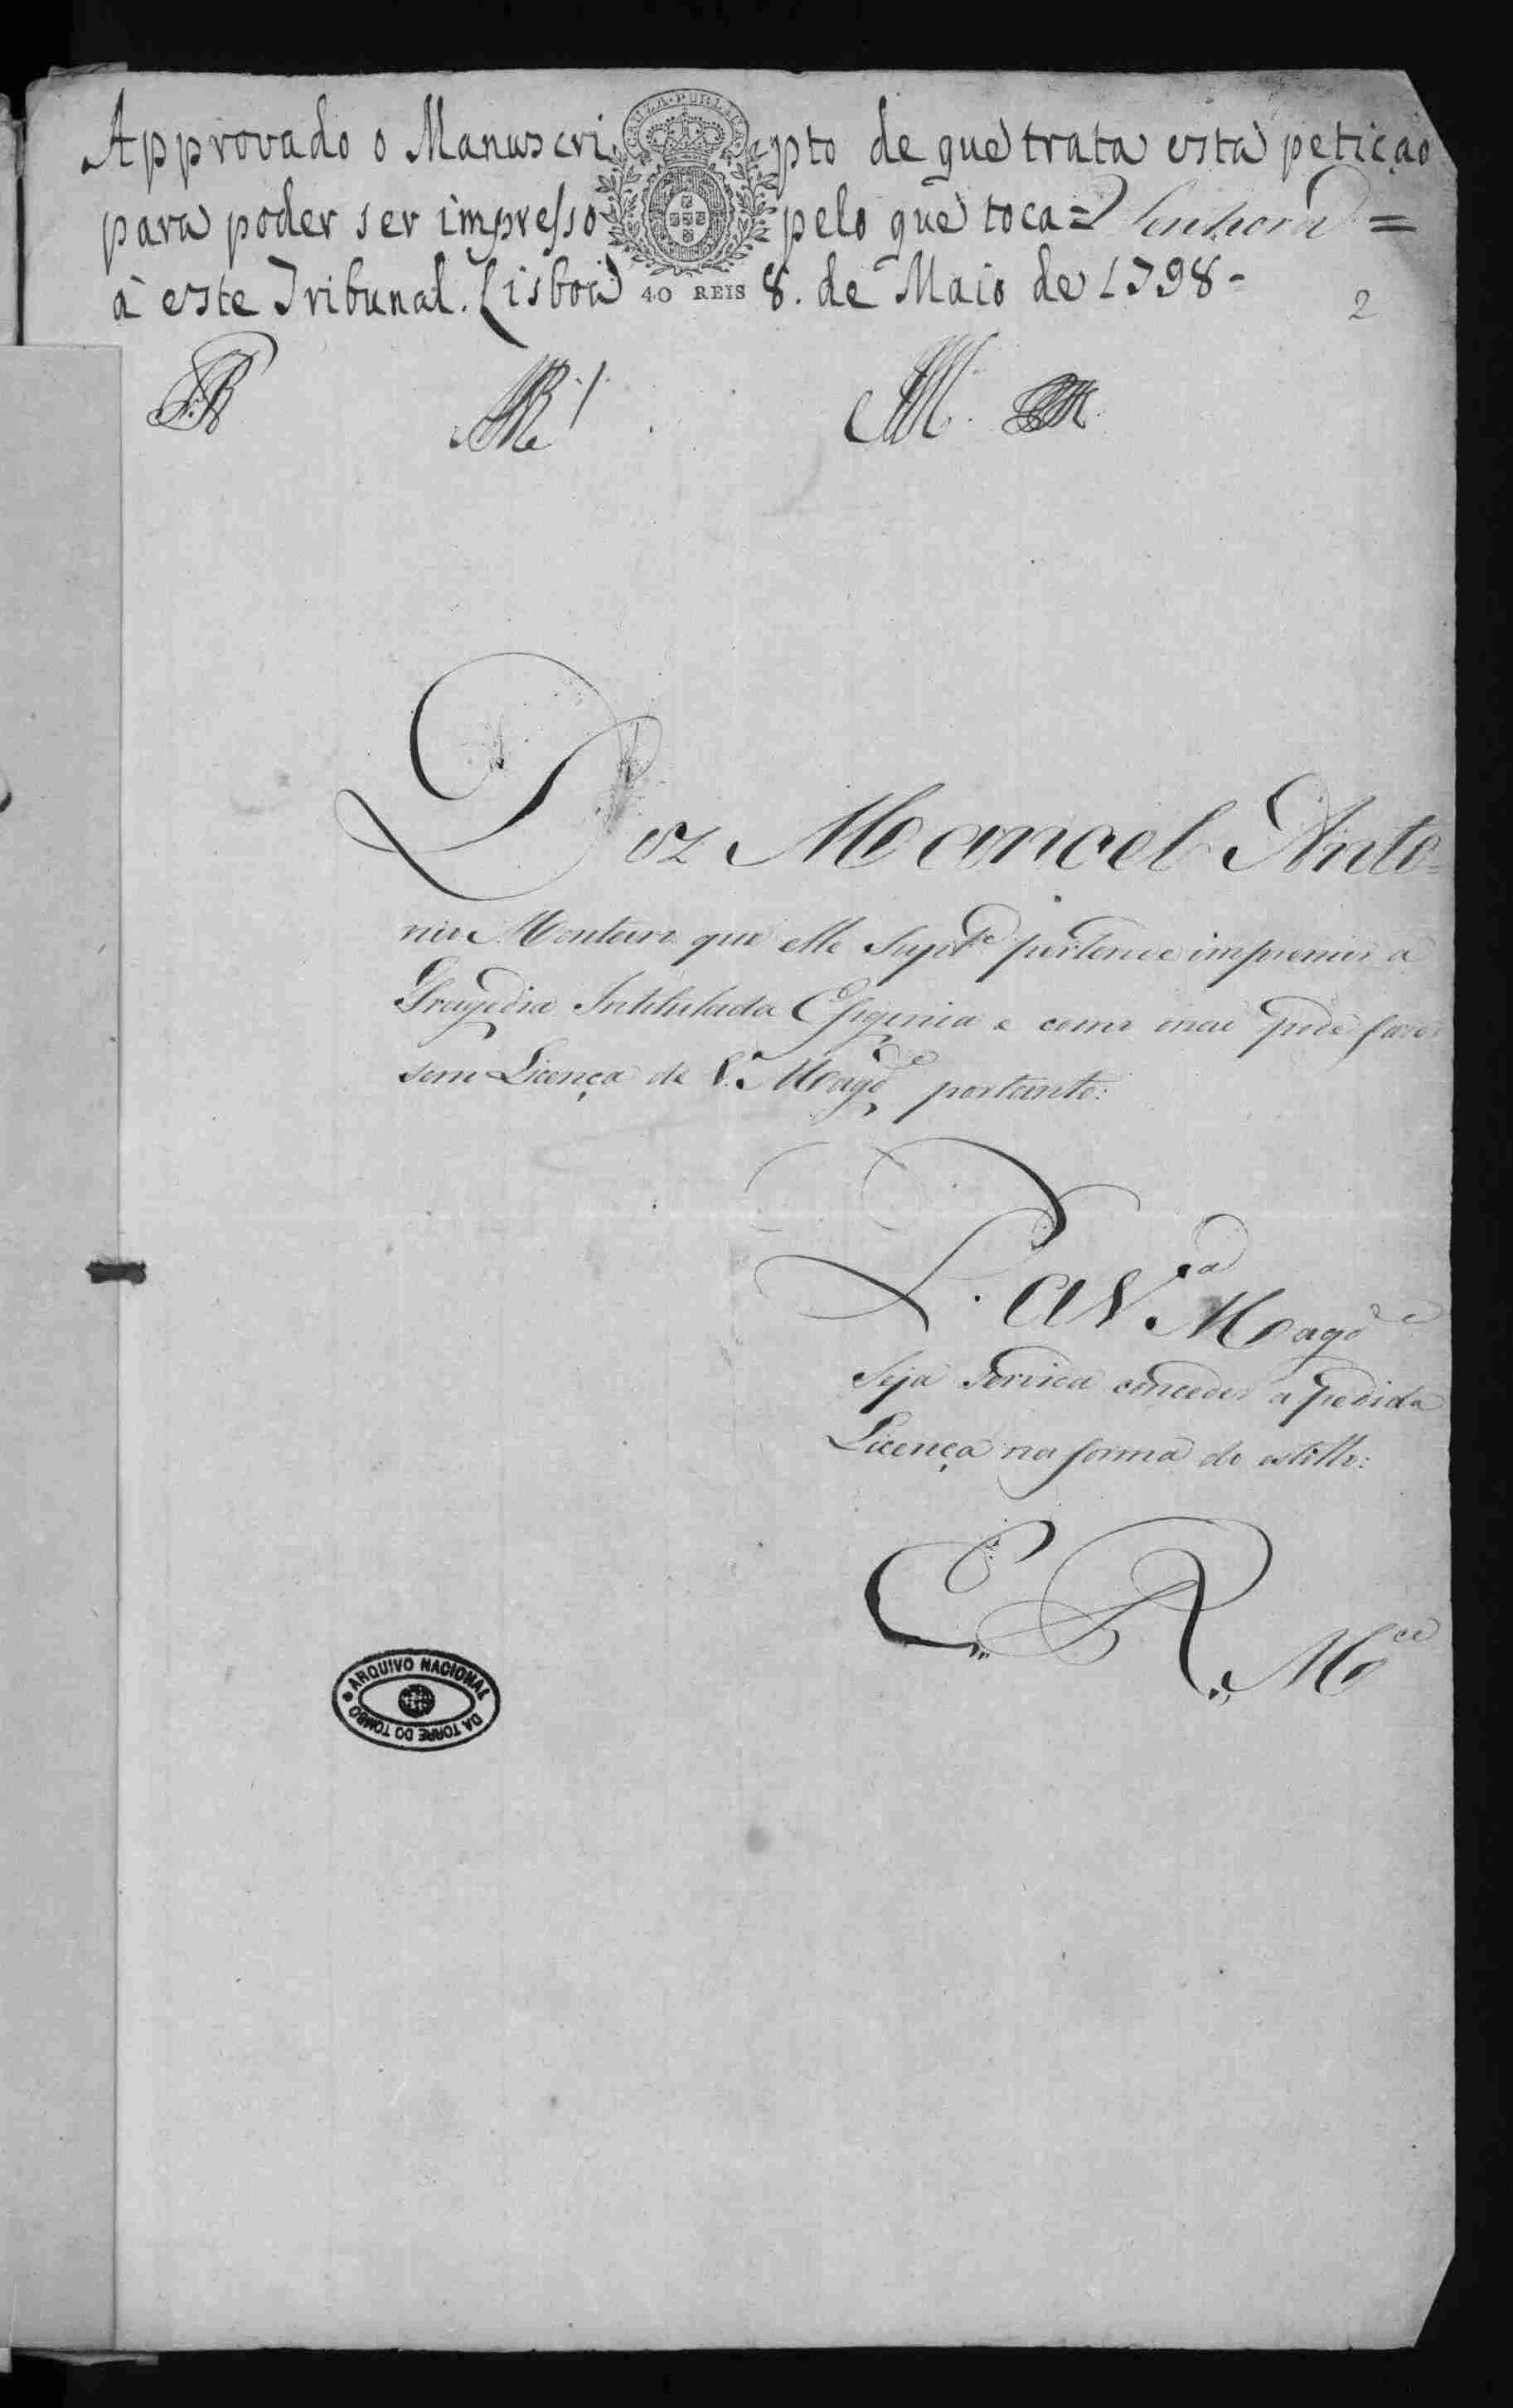 CAUZA PUBLICA
Approvado o Manuscripto de que trata esta petição
para poder ser impresso pelo que toca = Senhora =
à este Tribunal. Lisboa 8. de Maio de 1798 -
40 REIS
2
Diz Manoel Anto=
nio Monteiro que elle Supp.te pertende imprimir a
Tragedia Intitulada Efigenia e como nao pode fazer
sem Licença de V. Magde portanto:
P. a V.a Magde
Seja Servida conceder a pedida
Licença na forma do estillo:
E. R. Mce
ARQUIVO NACIONAL
DA TORRE DO TOMBO